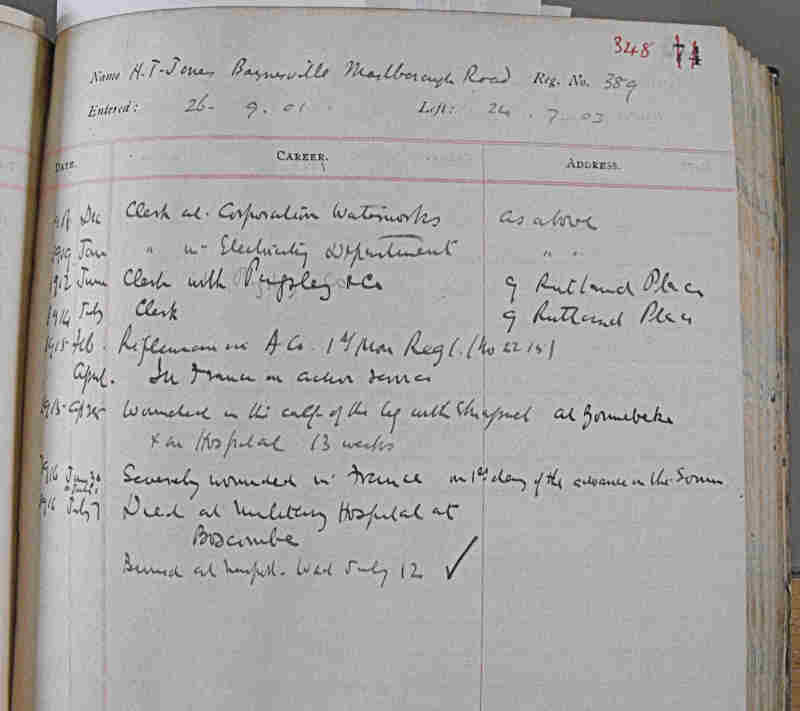 348 74
Name H.T. Jones Baynesville Marlborough Road Reg. No. 389
Entered: 26. 9. 01. Left: 24. 7. 03
DATE. CAREER. ADDRESS.
Dec Clerk at Corporation Waterworks as above
Jan " in Electricity Department " "
1912 June Clerk with Pugsley & Co 9 Rutland Place
1914 July Clerk 9 Rutland Place
1915 Feb. Rifleman in A Co. 1st Mon Regt. (No 2215)
April. In France on active service
1915 Apr 25 Wounded in the calf of the leg with Shrapnel at Zonnebeke
& in Hospital 13 weeks
1916 Severely wounded in France on 1st day of the advance on the Somme
1916 July 7 Died at Military Hospital at
Boscombe
Buried at Newport. Wed July 12 ✓